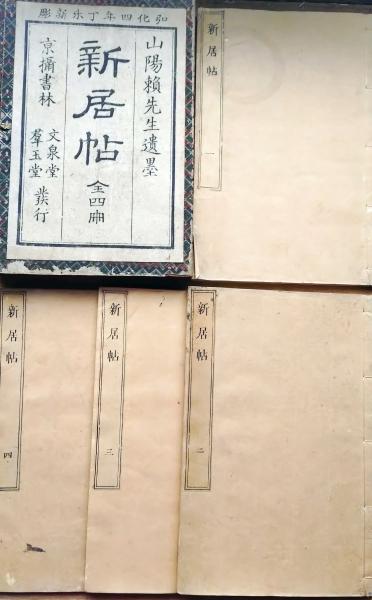 弘化四年丁未新彫
山陽賴先生遺墨
新居帖
全四冊
京攝書林
文泉堂
羣玉堂
發行
新居帖 一
新居帖 二
新居帖 三
新居帖 四